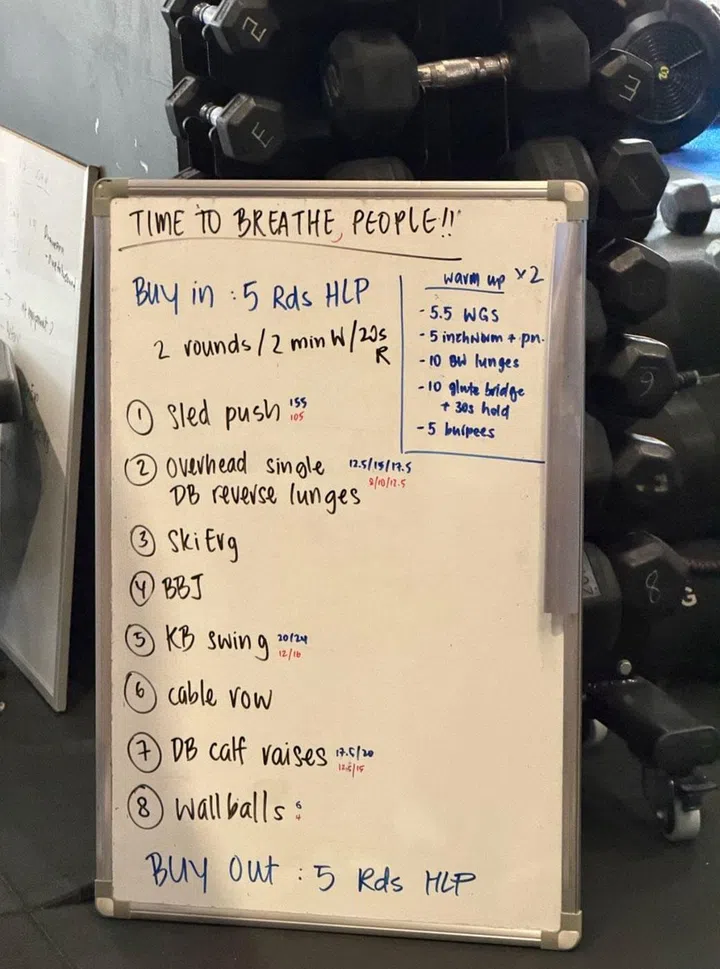 TIME TO BREATHE, PEOPLE!!
BUY in : 5 Rds HLP
2 rounds / 2 min W / 20s
R
warm up x2
- 5.5 WGS
- 5 inchworm + pn.
- 10 BW lunges
- 10 glute bridge
+ 30s hold
- 5 burpees
1 Sled push 155
105
2 overhead single 12.5/15/17.5
DB reverse lunges 8/10/12.5
3 Ski Erg
4 BBJ
5 KB swing 20/24
12/16
6 cable row
7 DB calf raises 17.5/20
12.5/15
8 Wallballs 6
4
BUY OUT : 5 Rds HLP
2
3
3
8